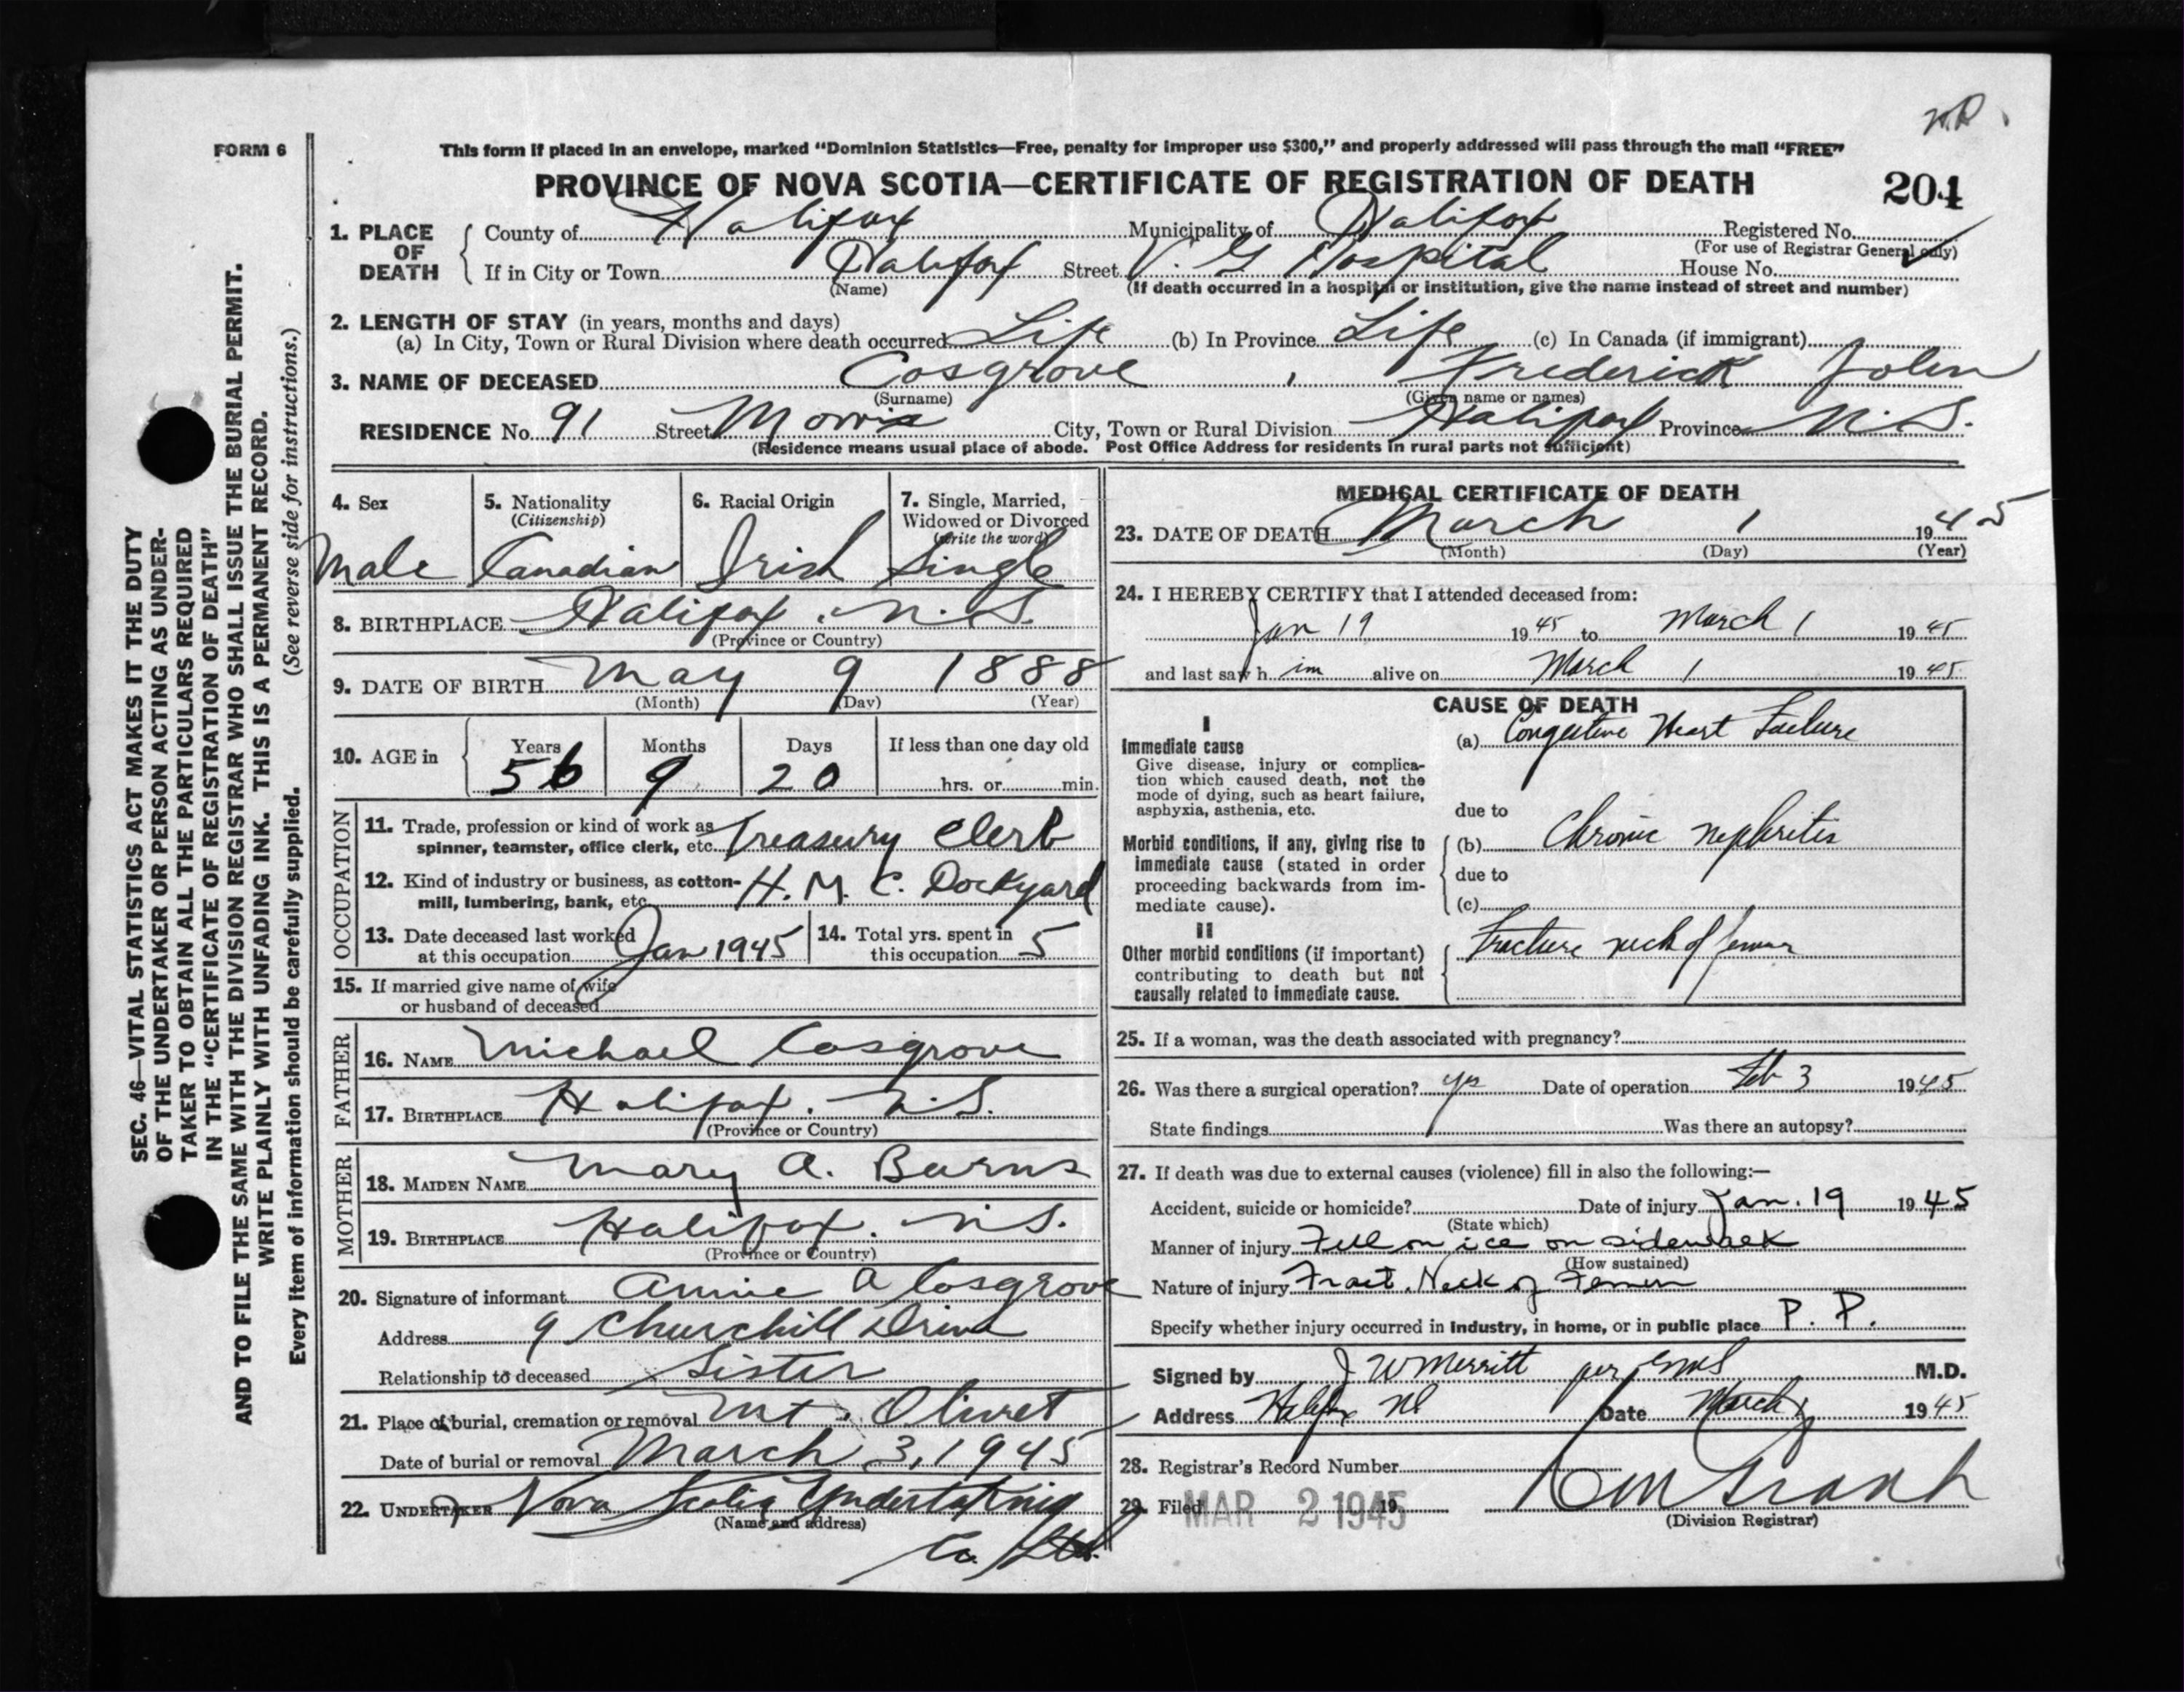 FORM 6
This form if placed in an envelope, marked "Dominion Statistics—Free, penalty for improper use $300," and properly addressed will pass through the mail "FREE"
PROVINCE OF NOVA SCOTIA—CERTIFICATE OF REGISTRATION OF DEATH
204
1. PLACE OF DEATH
County of Halifax Municipality of Halifax Registered No.
(For use of Registrar General only)
If in City or Town Halifax Street V. G Hospital House No.
(Name) (If death occurred in a hospital or institution, give the name instead of street and number)
2. LENGTH OF STAY (in years, months and days)
(a) In City, Town or Rural Division where death occurred Life (b) In Province Life (c) In Canada (if immigrant)
3. NAME OF DECEASED Cosgrove , Frederick John
(Surname) (Given name or names)
RESIDENCE No. 91 Street Morris City, Town or Rural Division Halifax Province N.S.
(Residence means usual place of abode. Post Office Address for residents in rural parts not sufficient)
4. Sex
Male
5. Nationality
(Citizenship)
Canadian
6. Racial Origin
Irish
7. Single, Married,
Widowed or Divorced
(write the word)
Single
8. BIRTHPLACE Halifax. N.S.
(Province or Country)
9. DATE OF BIRTH May 9 1888
(Month) (Day) (Year)
10. AGE in
Years Months Days If less than one day old
56 9 20 hrs. or min.
OCCUPATION
11. Trade, profession or kind of work as
spinner, teamster, office clerk, etc. Treasury Clerk
12. Kind of industry or business, as cotton-
mill, lumbering, bank, etc. H. M. C. Dockyard
13. Date deceased last worked
at this occupation Jan 1945
14. Total yrs. spent in
this occupation 5
15. If married give name of wife
or husband of deceased
FATHER
16. NAME Michael Cosgrove
17. BIRTHPLACE Halifax. N.S.
(Province or Country)
MOTHER
18. MAIDEN NAME Mary A. Burns
19. BIRTHPLACE Halifax. N.S.
(Province or Country)
20. Signature of informant Annie A Cosgrove
Address 9 Churchill Drive
Relationship to deceased Sister
21. Place of burial, cremation or removal Mt. Olivet
Date of burial or removal March 3, 1945
22. UNDERTAKER Nova Scotia Undertaking
(Name and address)
Co. Ltd.
MEDICAL CERTIFICATE OF DEATH
23. DATE OF DEATH March 1 1945
(Month) (Day) (Year)
24. I HEREBY CERTIFY that I attended deceased from:
Jan 19 1945 to March 1 1945
and last saw h im alive on March 1 1945
CAUSE OF DEATH
I
Immediate cause
Give disease, injury or complica-
tion which caused death, not the
mode of dying, such as heart failure,
asphyxia, asthenia, etc.
(a) Congestive Heart Failure
due to
Morbid conditions, if any, giving rise to
immediate cause (stated in order
proceeding backwards from im-
mediate cause).
(b) Chronic nephritis
due to
(c)
II
Other morbid conditions (if important)
contributing to death but not
causally related to immediate cause.
Fracture neck of femur
25. If a woman, was the death associated with pregnancy?
26. Was there a surgical operation? yes Date of operation Feb 3 1945
State findings Was there an autopsy?
27. If death was due to external causes (violence) fill in also the following:—
Accident, suicide or homicide? Date of injury Jan. 19 1945
(State which)
Manner of injury Fell on ice on sidewalk
(How sustained)
Nature of injury Fract. Neck of Femur
Specify whether injury occurred in industry, in home, or in public place P. P.
Signed by J W Merritt per M.D.
Address Halifax NS Date March 1 1945
28. Registrar's Record Number
29. Filed MAR 2 1945 19
(Division Registrar)
SEC. 46—VITAL STATISTICS ACT MAKES IT THE DUTY
OF THE UNDERTAKER OR PERSON ACTING AS UNDER-
TAKER TO OBTAIN ALL THE PARTICULARS REQUIRED
IN THE "CERTIFICATE OF REGISTRATION OF DEATH"
AND TO FILE THE SAME WITH THE DIVISION REGISTRAR WHO SHALL ISSUE THE BURIAL PERMIT.
WRITE PLAINLY WITH UNFADING INK. THIS IS A PERMANENT RECORD.
Every item of information should be carefully supplied. (See reverse side for instructions.)